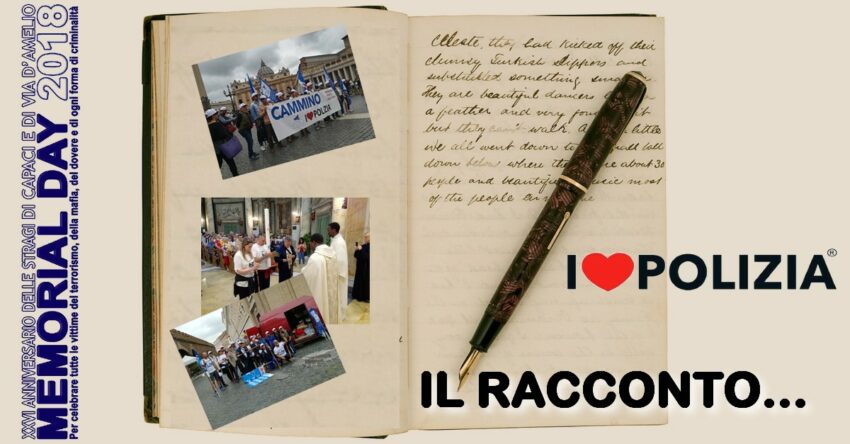 XXVI ANNIVERSARIO DELLE STRAGI DI CAPACI E DI VIA D'AMELIO
MEMORIAL DAY 2018
Per celebrare tutte le vittime del terrorismo, della mafia, del dovere e di ogni forma di criminalità
CAMMINO
I❤POLIZIA
Celeste, they had kicked off their
clumsy Turkish slippers and
substituted something
they are beautiful dancers
a feather and very
but they can't walk. A little
we all went down to
down below where the about 30
people and beautiful music most
of the people
I❤POLIZIA®
IL RACCONTO...